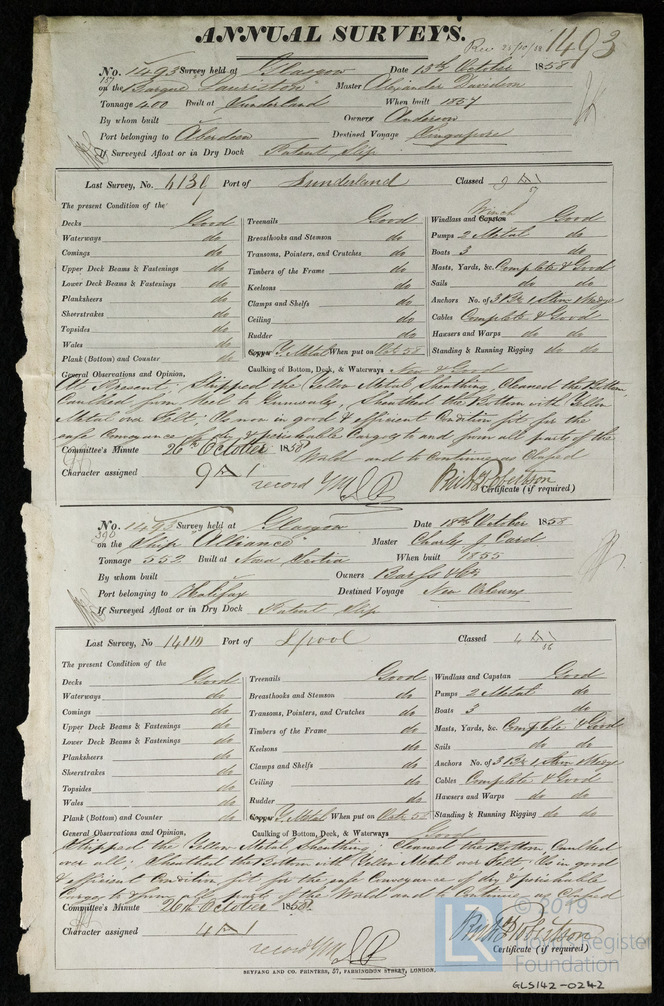 ANNUAL SURVEYS.
Rec 25/10/58 1493
No. 1493 Survey held at Glasgow Date 13th October 1858
on the Barque "Lauriston" Master Alexander Davidson
Tonnage 400 Built at Sunderland When built 1857
By whom built Owners Anderson
Port belonging to Aberdeen Destined Voyage Singapore
If Surveyed Afloat or in Dry Dock Patent Slip
Last Survey, No. 4139 Port of Sunderland Classed 9 A1
The present Condition of the
Decks Good
Waterways do
Comings do
Upper Deck Beams & Fastenings do
Lower Deck Beams & Fastenings do
Planksheers do
Sheerstrakes do
Topsides do
Wales do
Plank (Bottom) and Counter do
Treenails Good
Breasthooks and Stemson do
Transoms, Pointers, and Crutches do
Timbers of the Frame do
Keelsons do
Clamps and Shelfs do
Ceiling do
Rudder do
Copper Y. Metal When put on Oct. 58
Caulking of Bottom, Deck, & Waterways New & Good
Winch
Windlass and Capstan Good
Pumps 2 Metal do
Boats 3 do
Masts, Yards, &c. Complete & Good
Sails do do
Anchors No. of 3 Br 1 Strm 1 Kedge
Cables Complete & Good
Hawsers and Warps do do
Standing & Running Rigging do do
General Observations and Opinion,
At Present. Stripped the Yellow Metal Sheathing, Cleaned the Bottom,
Caulked from Keel to Gunwales, Sheathed the Bottom with Yellow
Metal over Felt. Is now in good & efficient Condition fit for the
safe Conveyance of dry & perishable Cargoes to and from all parts of the
World and to Continue as Classed
Committee's Minute 26th October 1858
Character assigned 9 A1
record YM
Robertson
Certificate (if required)
No. 1495 Survey held at Glasgow Date 18th October 1858
on the Ship "Alliance" Master Charles J Card
Tonnage 552 Built at Nova Scotia When built 1855
By whom built Owners Barss & Co
Port belonging to Halifax Destined Voyage New Orleans
If Surveyed Afloat or in Dry Dock Patent Slip
Last Survey, No Port of Lpool Classed 4 A1
56
The present Condition of the
Decks Good
Waterways do
Comings do
Upper Deck Beams & Fastenings do
Lower Deck Beams & Fastenings do
Planksheers do
Sheerstrakes do
Topsides do
Wales do
Plank (Bottom) and Counter do
Treenails Good
Breasthooks and Stemson do
Transoms, Pointers, and Crutches do
Timbers of the Frame do
Keelsons do
Clamps and Shelfs do
Ceiling do
Rudder do
Copper Y. Metal When put on Oct. 58
Caulking of Bottom, Deck, & Waterways Good
Windlass and Capstan Good
Pumps 2 Metal do
Boats 3 do
Masts, Yards, &c. Complete & Good
Sails do do
Anchors No. of 3 Br 1 Strm 1 Kedge
Cables Complete & Good
Hawsers and Warps do do
Standing & Running Rigging do do
General Observations and Opinion,
Stripped the Yellow Metal Sheathing. Cleaned the Bottom, Caulked
over all. Sheathed the Bottom with Yellow Metal over Felt. Is in good
& efficient Condition fit for the safe Conveyance of dry & perishable
Cargoes to & from all parts of the World and to Continue as Classed
Committee's Minute 26th October 1858
Character assigned 4 A1
record YM
Robertson
Certificate (if required)
SEYFANG AND CO. PRINTERS, 57, FARRINGDON STREET, LONDON.
LR © 2019
Lloyd's Register
Foundation
GLS142-0242